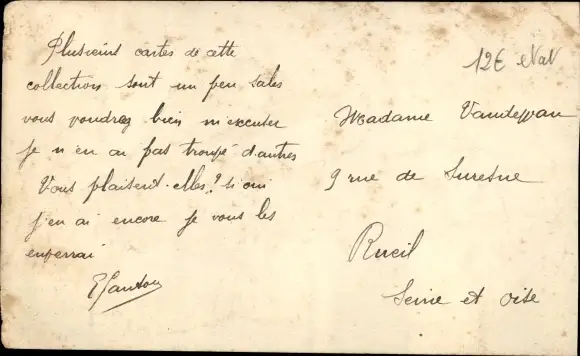 Plusieurs cartes de cette
collection sont un peu sales
vous voudrez bien m'excuser
je n'en ai pas trouvé d'autres
Vous plaisent-elles? si oui
j'en ai encore je vous les
enverrai
12€
Madame
9 rue de Suresne
Rueil
Seine et Oise